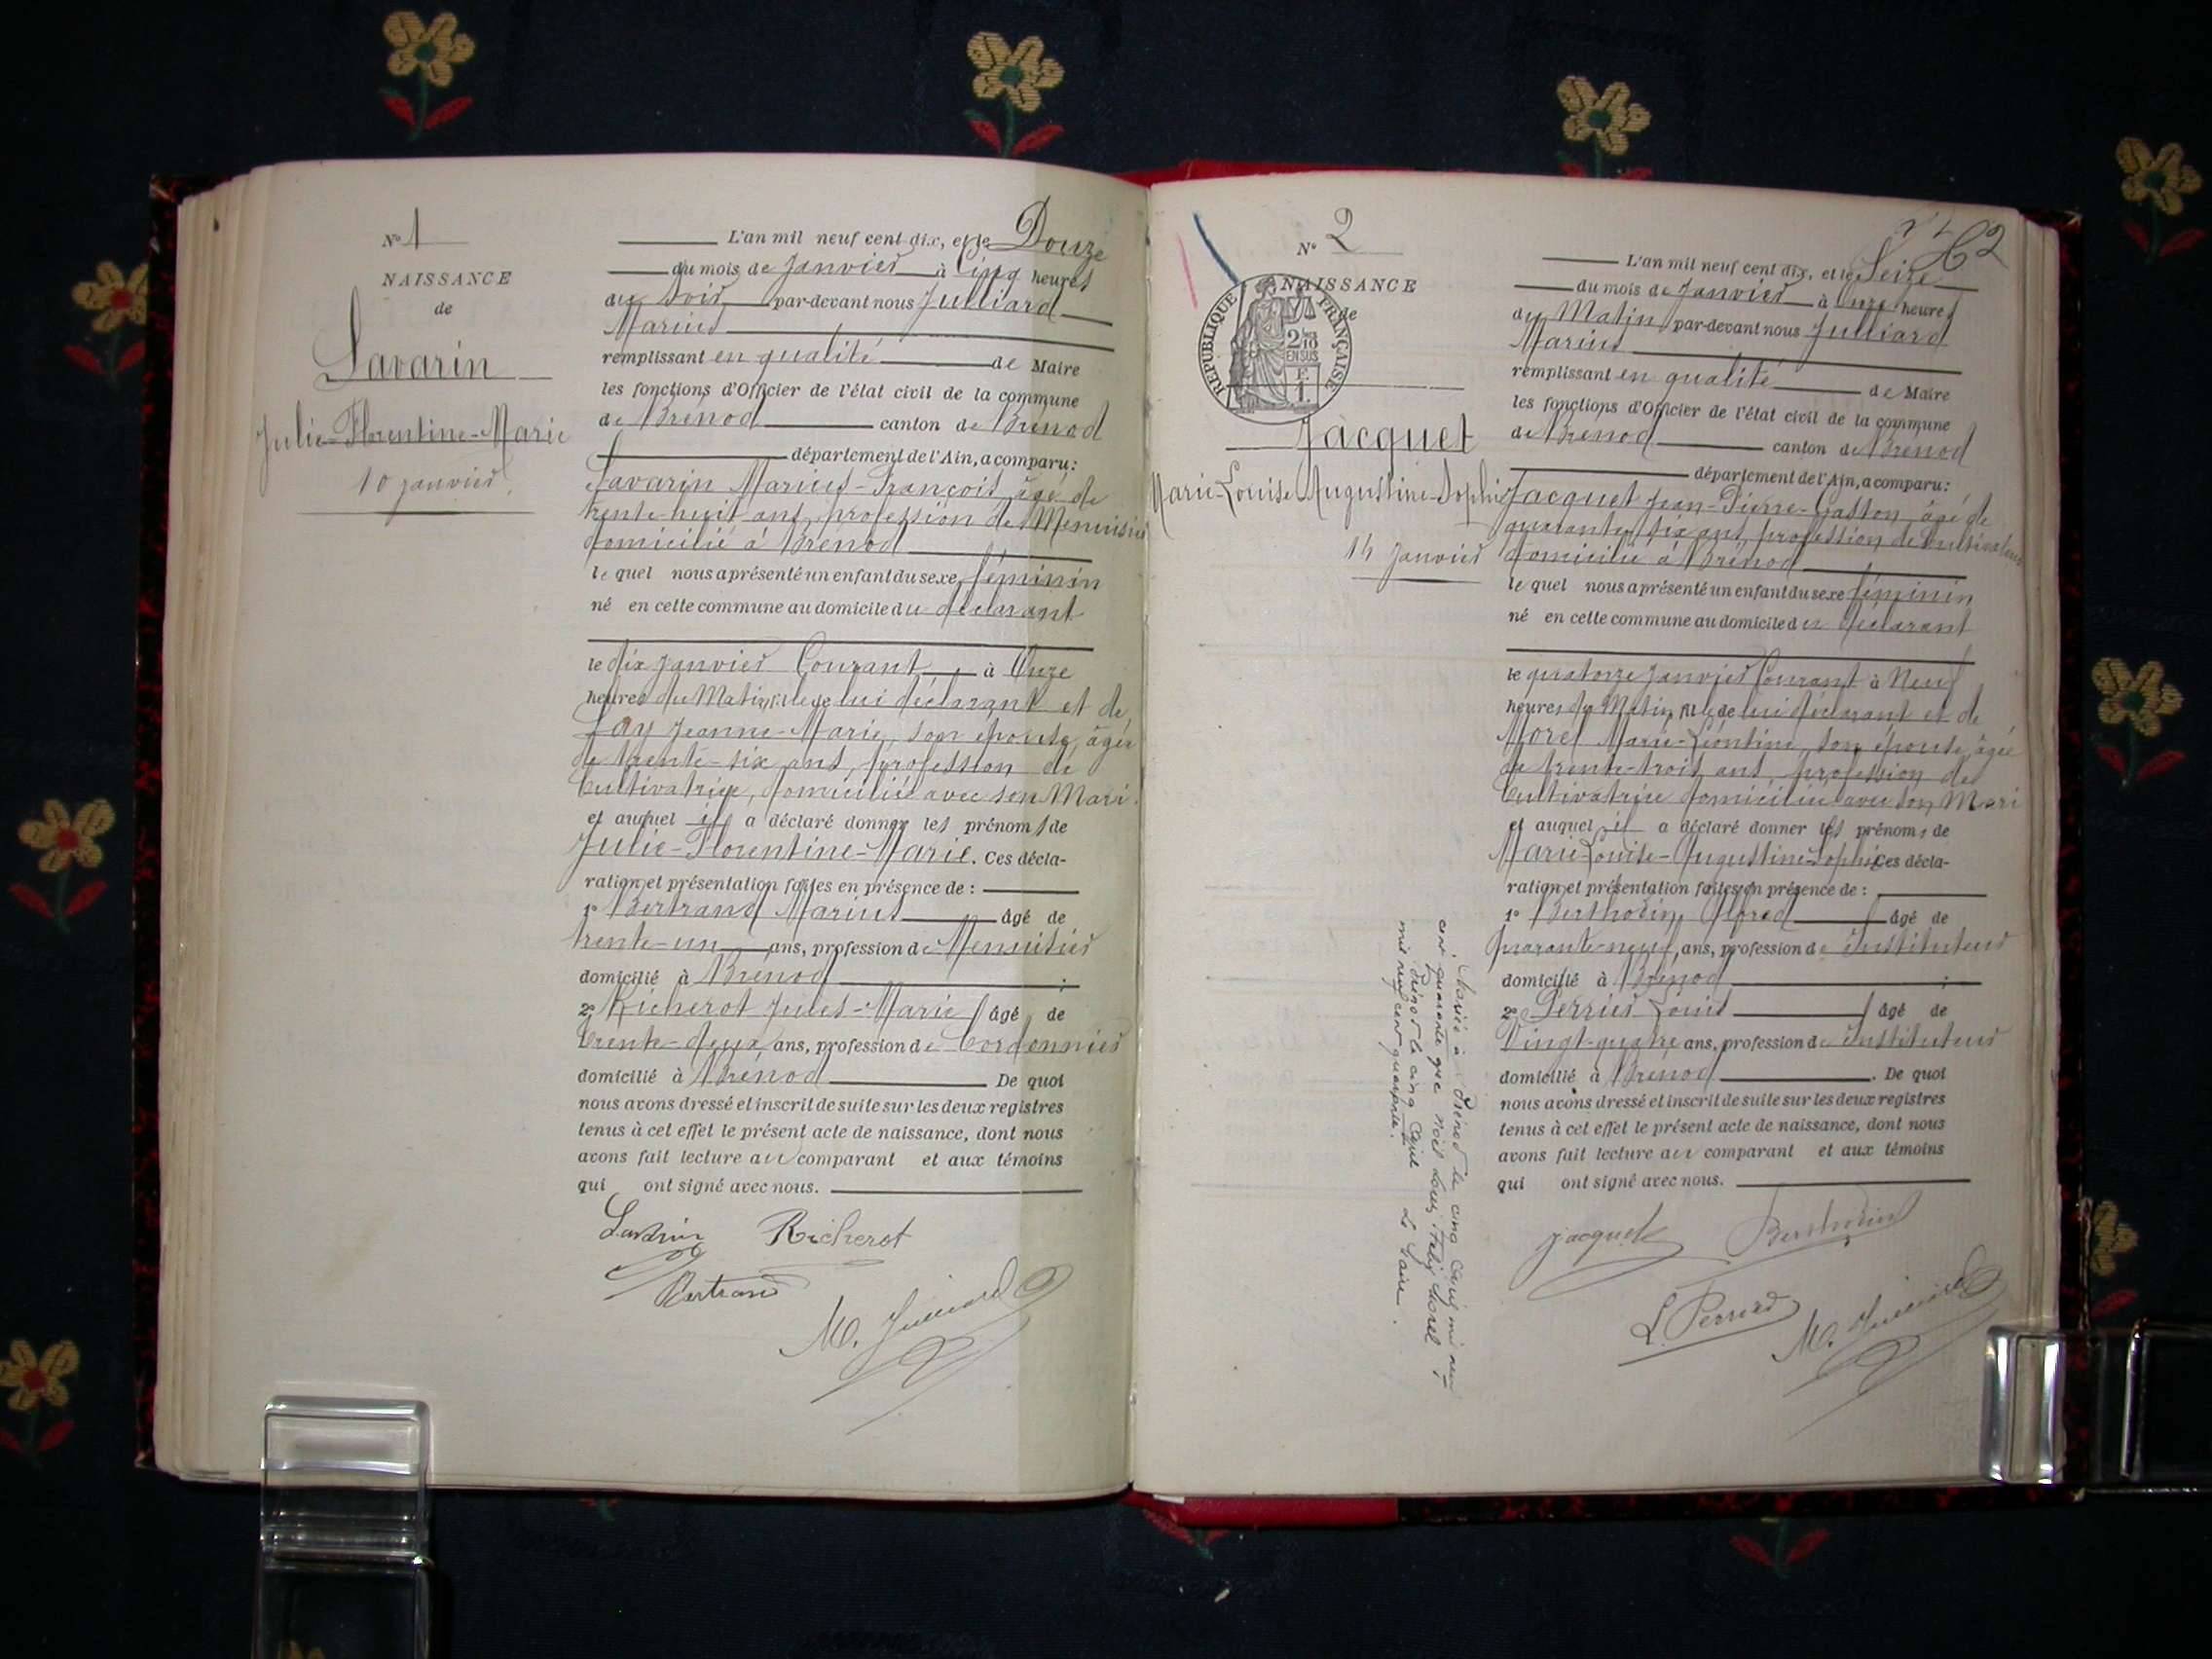 N° 1
NAISSANCE
de
Savarin
Julie-Florentine-Marie
10 janvier
L'an mil neuf cent dix, et le Douze
du mois de Janvier à Cinq heures
du Soir par-devant nous Julliard
Marius
remplissant en qualité de Maire
les fonctions d'Officier de l'état civil de la commune
de Brénod canton de Brénod
département de l'Ain, a comparu:
Savarin Marius-François, âgé de
trente-huit ans, profession de Menuisier
domicilié à Brénod
le quel nous a présenté un enfant du sexe féminin
né en cette commune au domicile du déclarant
le dix Janvier Courant à Onze
heures du Matin, fille de lui déclarant et de
Jeanne-Marie, son épouse, âgée
de trente-six ans, profession de
Cultivatrice, domiciliée avec son Mari.
et auquel il a déclaré donner les prénoms de
Julie-Florentine-Marie. Ces décla-
ration et présentation faites en présence de :
1° Bertrand Marius âgé de
trente-un ans, profession de Menuisier
domicilié à Brénod ;
2° Richerot Jules-Marie âgé de
trente-deux ans, profession de Cordonnier
domicilié à Brénod De quoi
nous avons dressé et inscrit de suite sur les deux registres
tenus à cet effet le présent acte de naissance, dont nous
avons fait lecture au comparant et aux témoins
qui ont signé avec nous.
Savarin Richerot
Bertrand
M. Julliard
N° 2
NAISSANCE
de
RÉPUBLIQUE FRANÇAISE
2/10
EN SUS
F.
1.
Jacquet
Marie-Louise-Augustine-Sophie
14 Janvier
62
L'an mil neuf cent dix, et le Seize
du mois de Janvier à Onze heures
du Matin par-devant nous Julliard
Marius
remplissant en qualité de Maire
les fonctions d'Officier de l'état civil de la commune
de Brénod canton de Brénod
département de l'Ain, a comparu:
Jacquet Jean-Pierre-Gaston, âgé de
quarante-six ans, profession de Cultivateur
domicilié à Brénod
le quel nous a présenté un enfant du sexe féminin
né en cette commune au domicile du déclarant
le quatorze Janvier Courant à Neuf
heures du Matin, fille de lui déclarant et de
Morel Marie-Léontine, son épouse, âgée
de trente-trois ans, profession de
Cultivatrice domiciliée avec son Mari
et auquel il a déclaré donner les prénoms de
Marie-Louise-Augustine-Sophie Ces décla-
ration et présentation faites en présence de :
1° âgé de
quarante-neuf, ans, profession de Instituteur
domicilié à Brénod ;
2° Perrier Louis âgé de
Vingt-quatre ans, profession de Instituteur
domicilié à Brénod . De quoi
nous avons dressé et inscrit de suite sur les deux registres
tenus à cet effet le présent acte de naissance, dont nous
avons fait lecture au comparant et aux témoins
qui ont signé avec nous.
Jacquet
L. Perrier M. Julliard
Mariée à Brénod le cinq Avril mil neuf
cent quarante avec Noël Louis Félix Morel
Brénod le cinq Avril
mil neuf cent quarante. Le Maire.